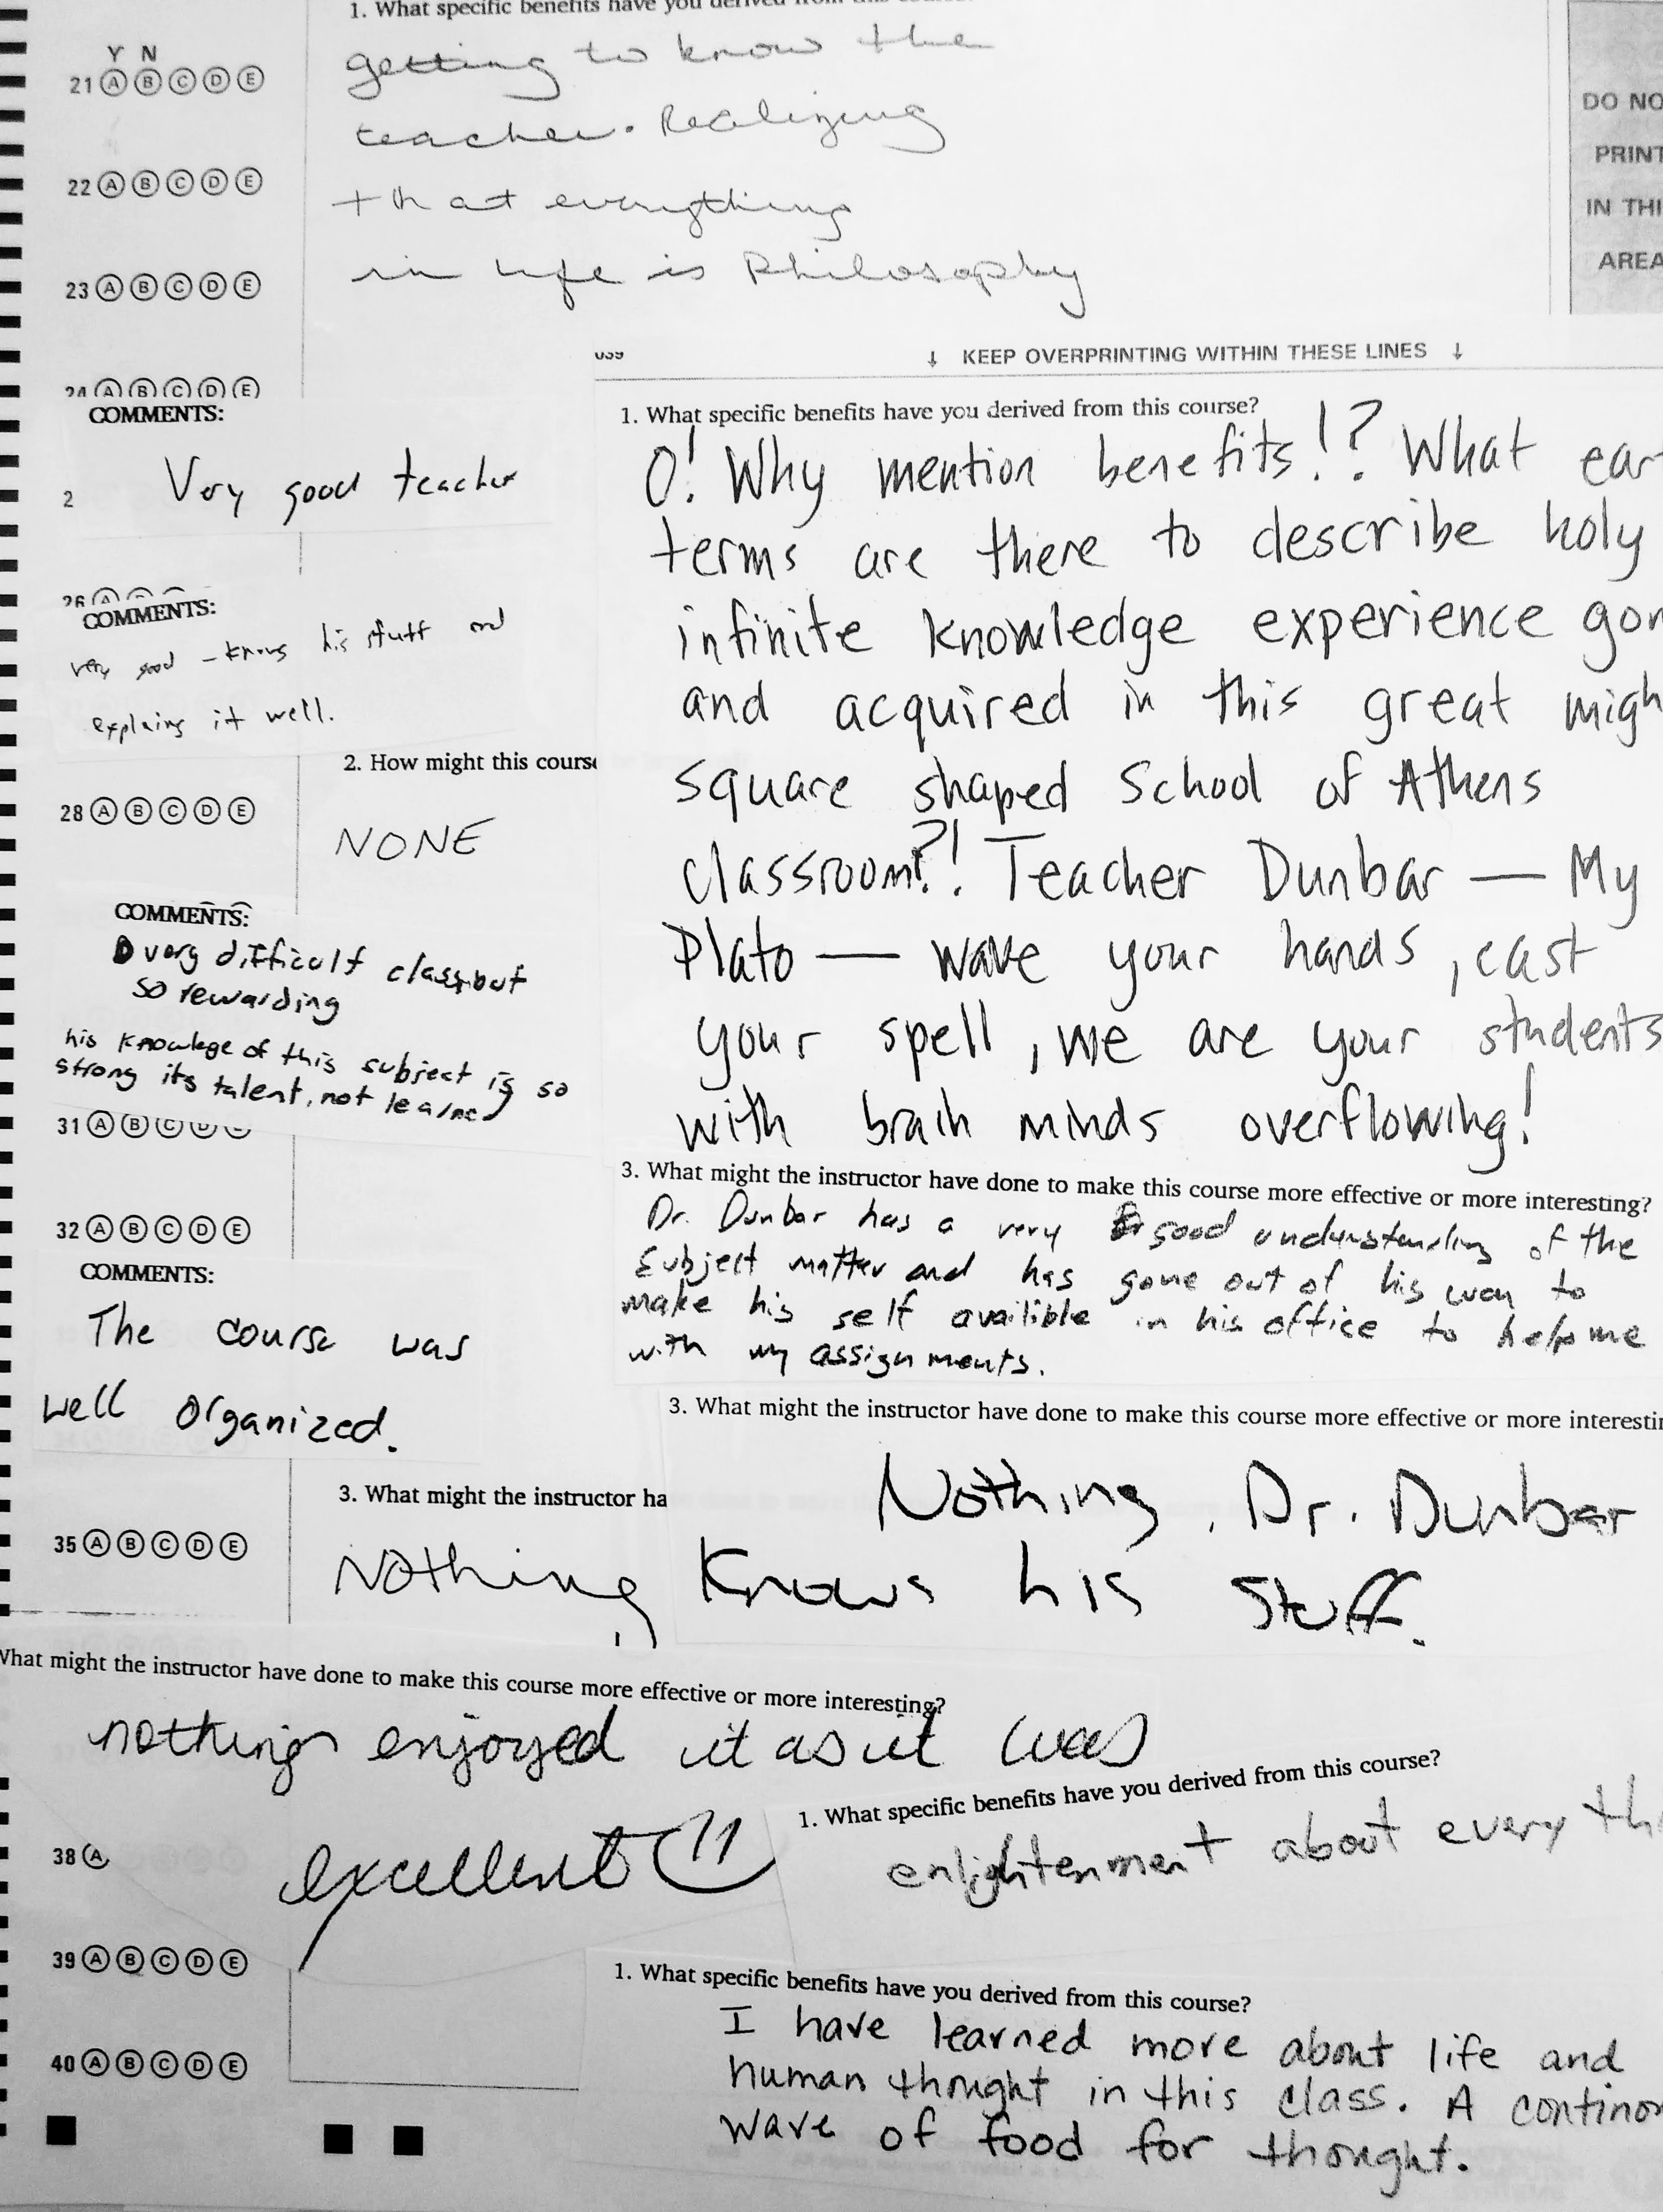 1. What specific benefits have you derived from this course?
Y N
21 A B C D E
getting to know the
teacher. Realizing
22 A B C D E
that everything
23 A B C D E
in life is Philosophy
DO NO
PRINT
IN THI
AREA
039
↓ KEEP OVERPRINTING WITHIN THESE LINES ↓
24 A B C D E
COMMENTS:
2
Very good teacher
26 A
COMMENTS:
very good - knows his stuff and
explains it well.
2. How might this course
28 A B C D E
NONE
COMMENTS:
very difficult class, but
so rewarding
his knowlege of this subject is so
strong its talent, not learned
31 A B C D E
32 A B C D E
COMMENTS:
The course was
well organized.
1. What specific benefits have you derived from this course?
O! Why mention benefits!? What ear
terms are there to describe holy
infinite knowledge experience gon
and acquired in this great migh
square shaped School of Athens
classroom?! Teacher Dunbar — My
Plato — wave your hands, cast
your spell, we are your students
with brain minds overflowing!
3. What might the instructor have done to make this course more effective or more interesting?
Dr. Dunbar has a very good understanding of the
subject matter and has gone out of his way to
make his self availible in his office to help me
with my assignments.
3. What might the instructor have done to make this course more effective or more interestin
Nothing. Dr. Dunbar
Knows his stuff.
3. What might the instructor ha
35 A B C D E
Nothing
What might the instructor have done to make this course more effective or more interesting?
nothing enjoyed it as it was
38 A
excellent
1. What specific benefits have you derived from this course?
enlightenment about every th
39 A B C D E
40 A B C D E
1. What specific benefits have you derived from this course?
I have learned more about life and
human thought in this class. A continor
wave of food for thought.